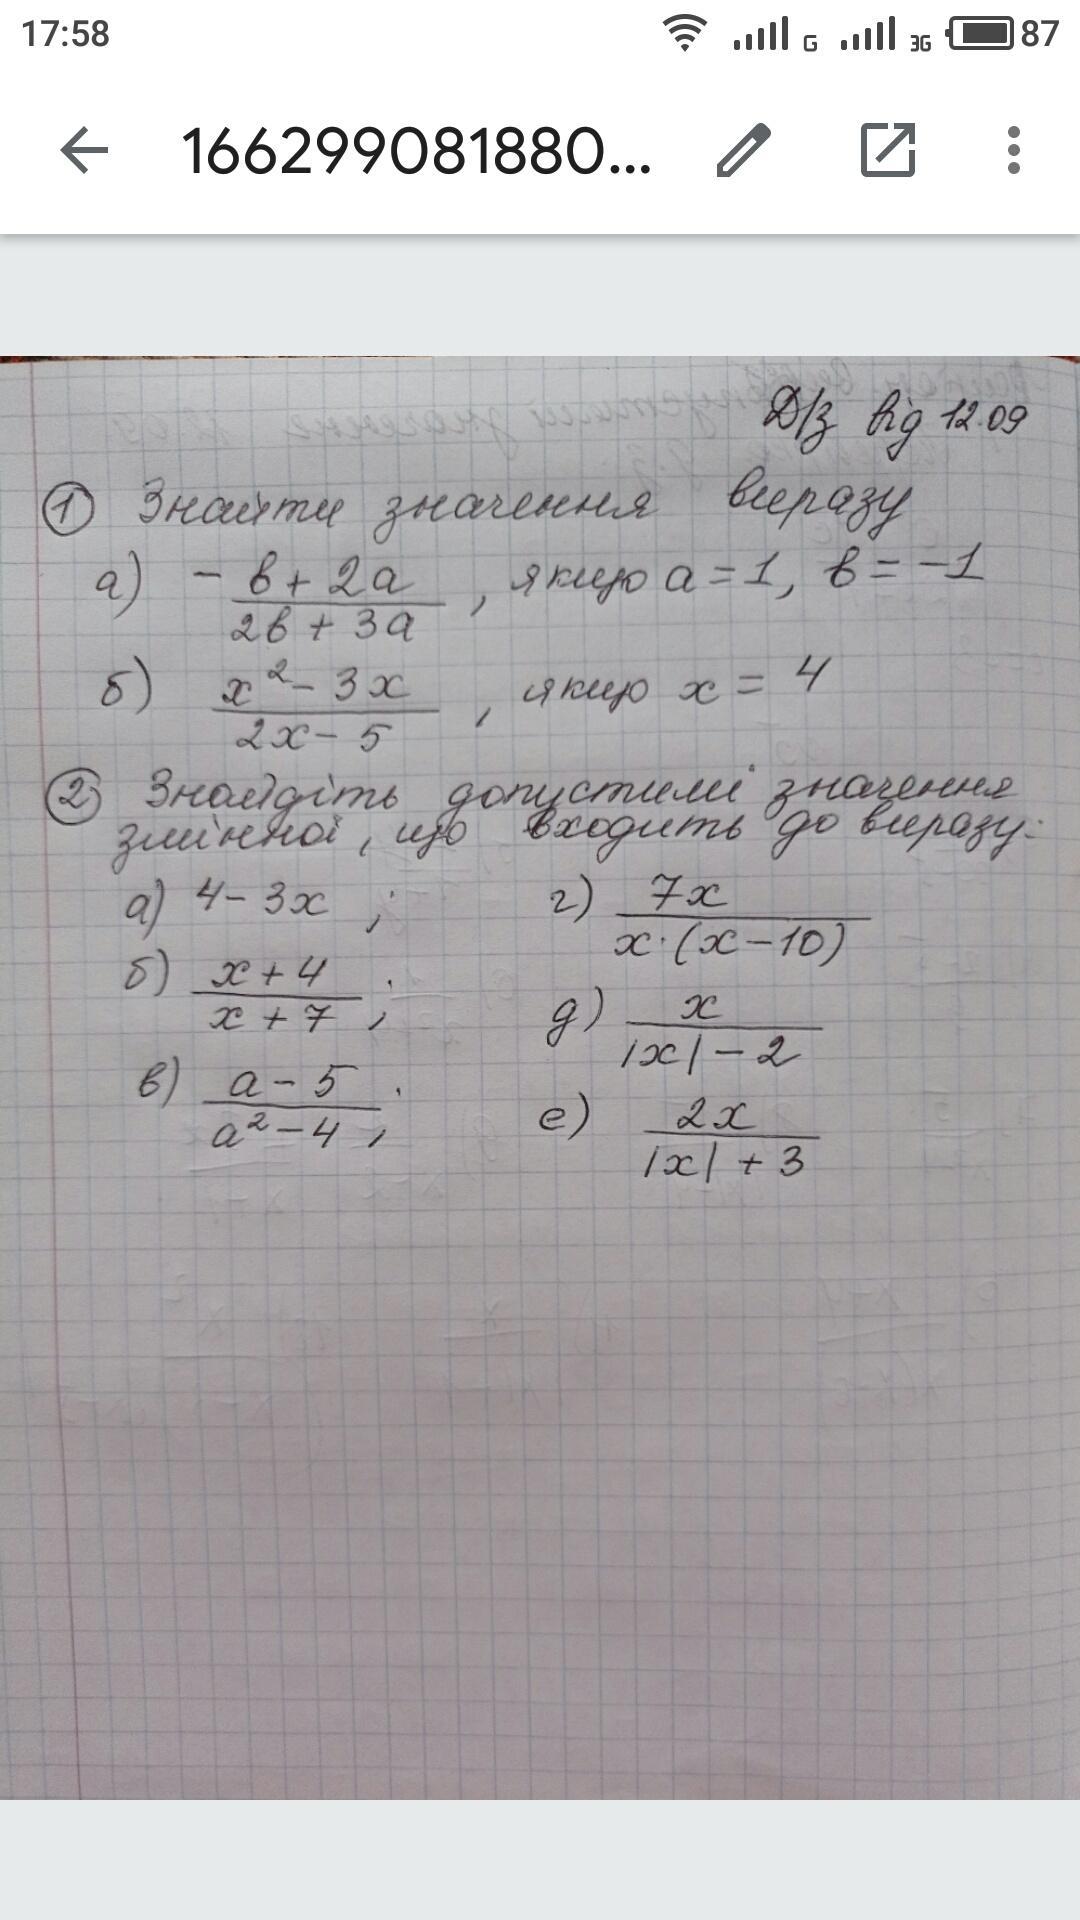 17:58 G 3G 87
166299081880...
Д/з від 12.09
① Знайти значення виразу
а) -b + 2a / 2b + 3a , якщо a = 1, b = -1
б) x² - 3x / 2x - 5 , якщо x = 4
② Знайдіть допустимі значення
змінної, що входить до виразу:
а) 4 - 3x ; г) 7x / x·(x - 10)
б) x + 4 / x + 7 ; д) x / |x| - 2
в) a - 5 / a² - 4 ; е) 2x / |x| + 3